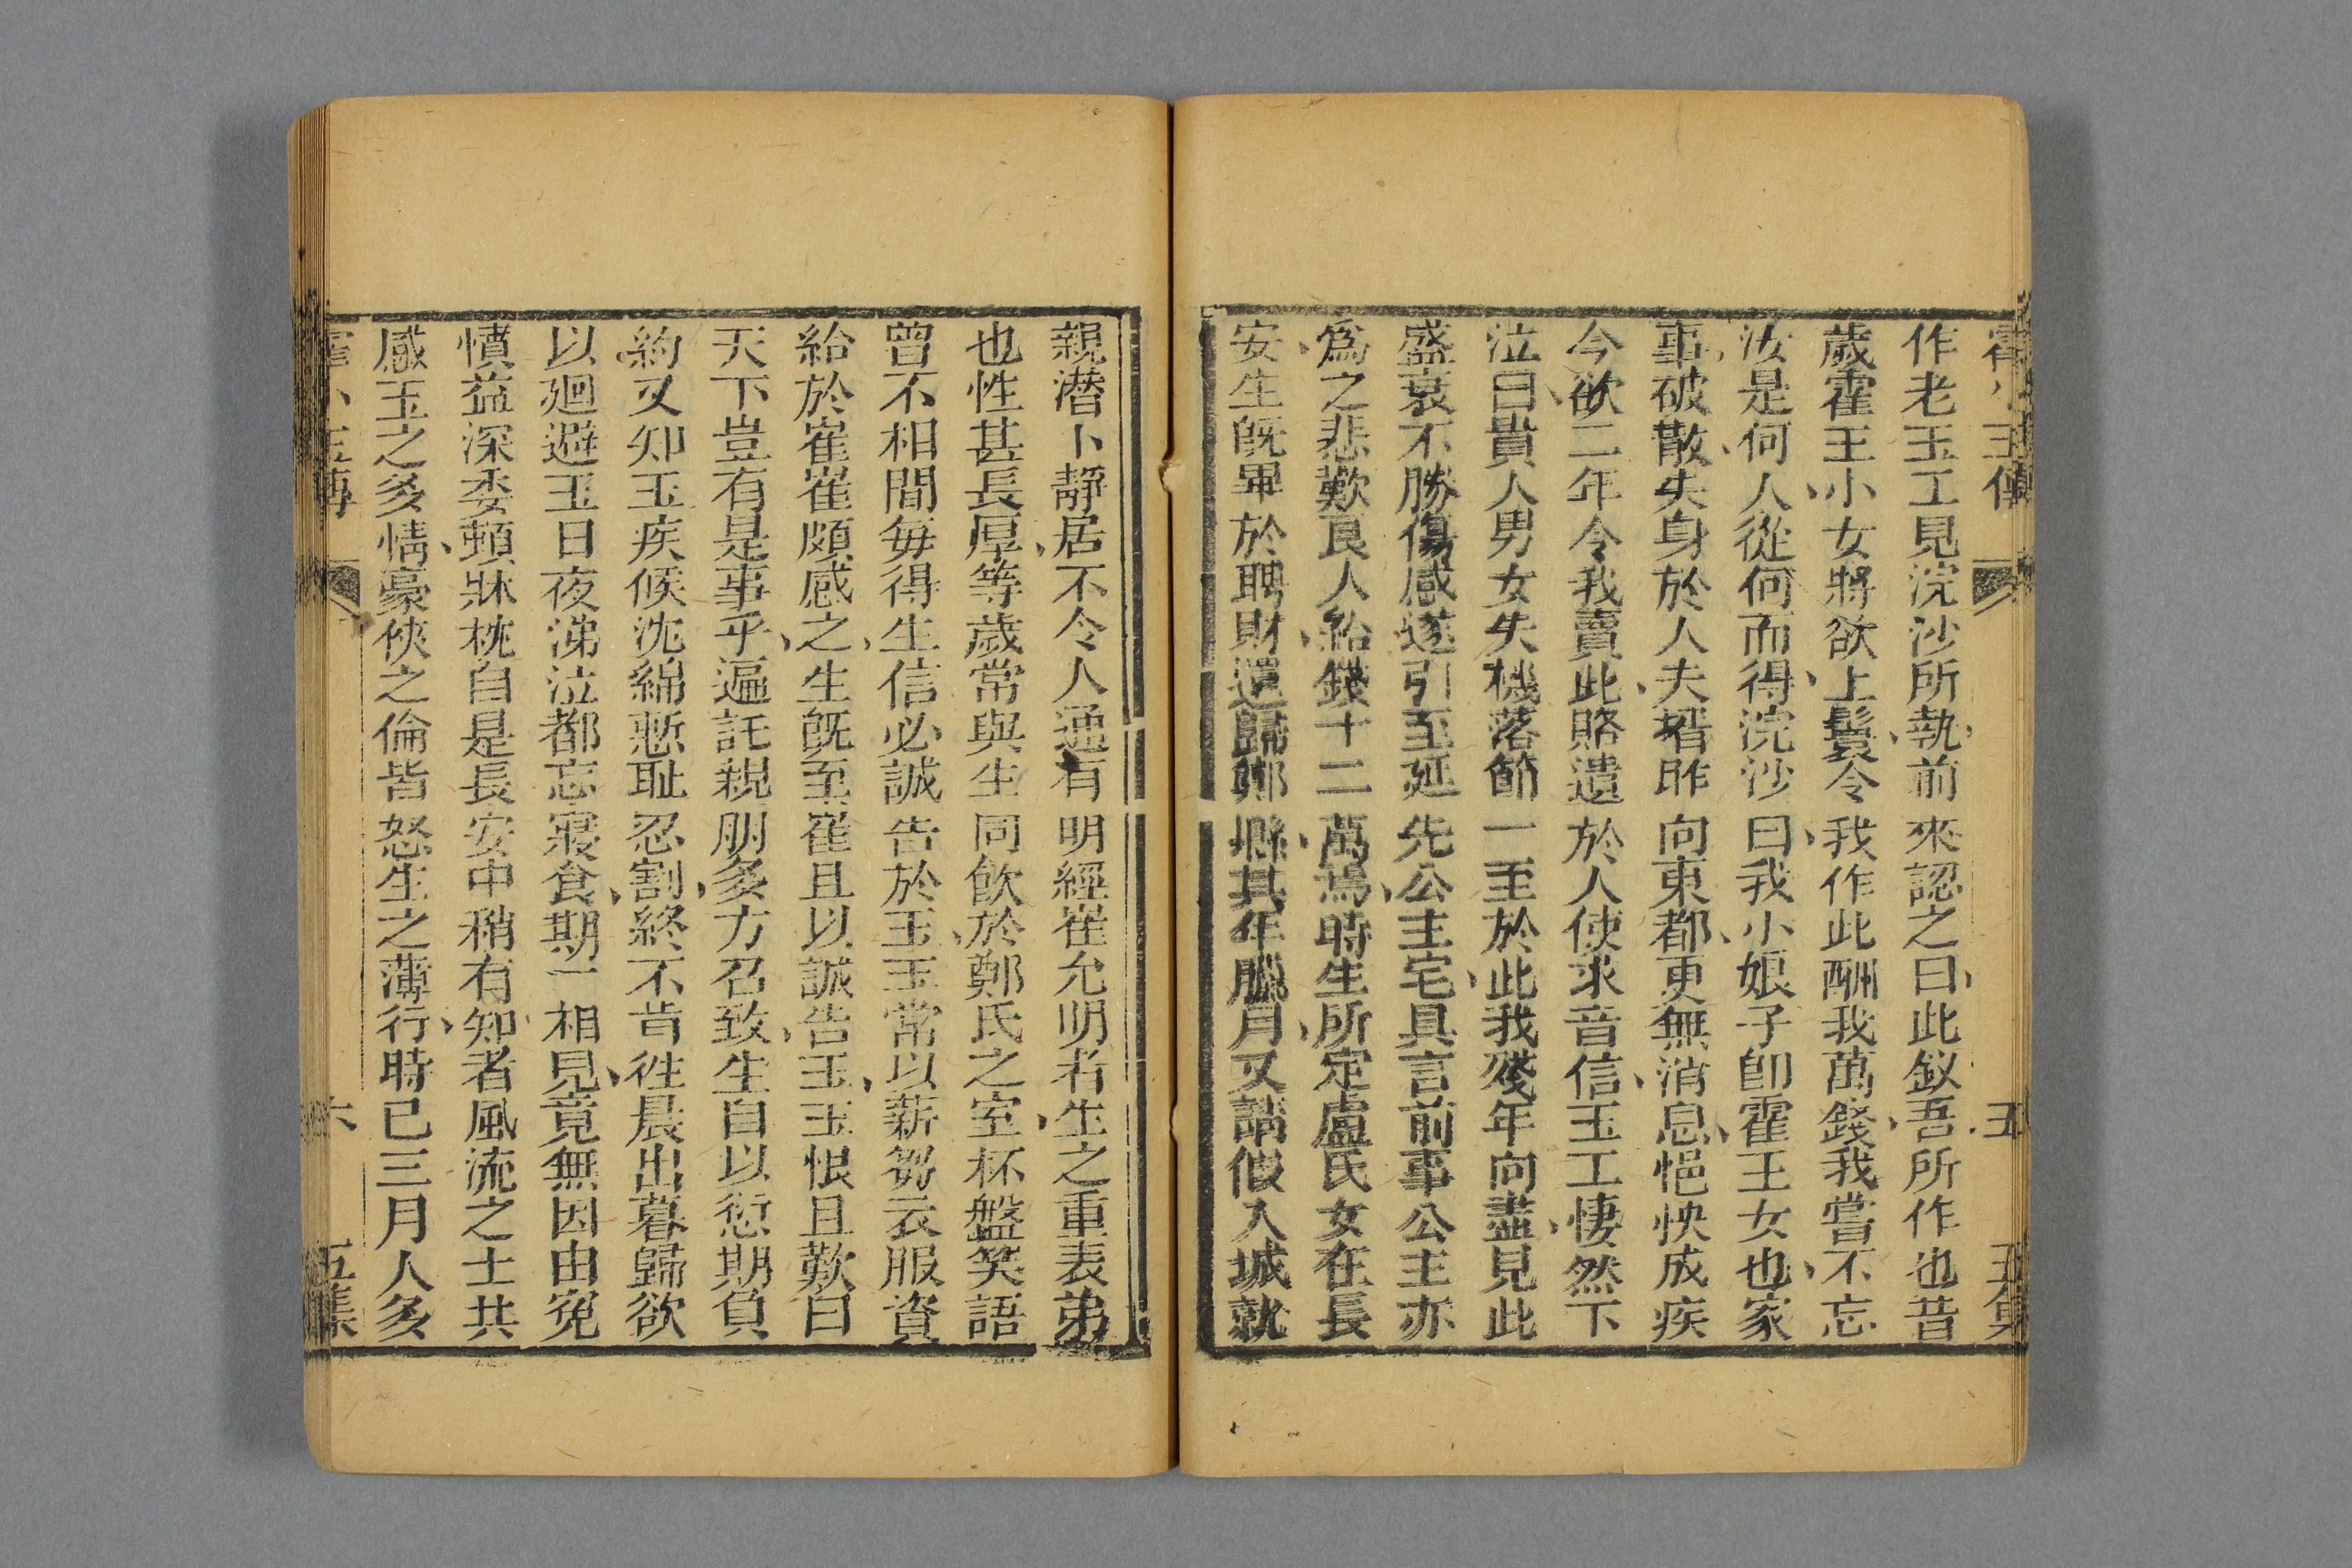 霍小玉傳
五
五集
作老玉工見浣沙所執前來認之曰此釵吾所作也昔
歲霍王小女將欲上鬟令我作此酬我萬錢我嘗不忘
汝是何人從何而得浣沙曰我小娘子卽霍王女也家
事破散失身於人夫壻昨向東都更無消息悒怏成疾
今欲二年令我賣此賂遺於人使求音信玉工悽然下
泣曰貴人男女失機落節一至於此我殘年向盡見此
盛衰不勝傷感遂引至延先公主宅具言前事公主亦
爲之悲歎良人給錢十二萬焉時生所定盧氏女在長
安生旣畢於聘財還歸鄭縣其年臘月又請假入城就
親潛卜靜居不令人通有明經崔允明者生之重表弟
也性甚長厚等歲常與生同飮於鄭氏之室杯盤笑語
曾不相間每得生信必誠告於玉玉常以薪芻衣服資
給於崔崔頗感之生旣至崔且以誠告玉玉恨且歎曰
天下豈有是事乎遍託親朋多方召致生自以愆期負
約又知玉疾候沈綿慙耻忍割終不肯往晨出暮歸欲
以廻避玉日夜涕泣都忘寢食期一相見竟無因由寃
憤益深委頓牀枕自是長安中稍有知者風流之士共
感玉之多情豪俠之倫皆怒生之薄行時已三月人多
霍小玉傳
六
五集